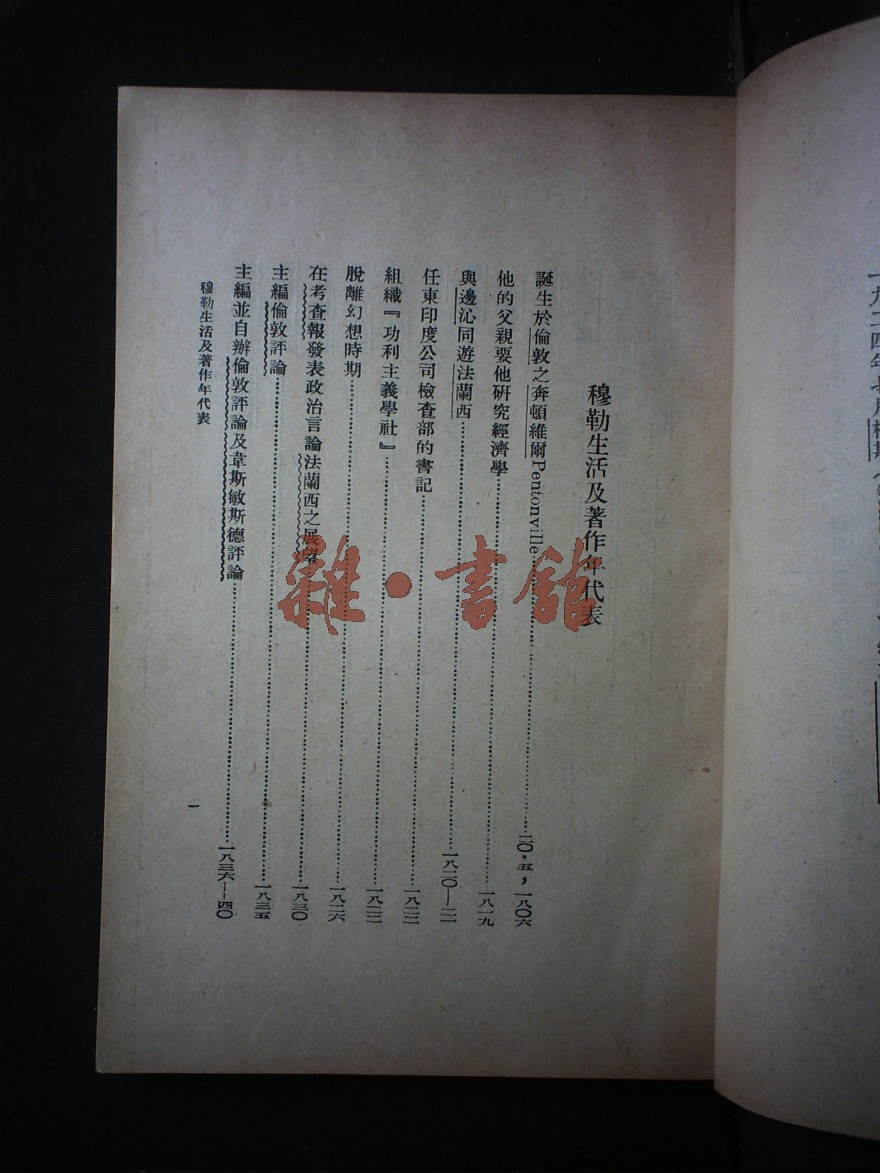 穆勒生活及著作年代表
誕生於倫敦之奔頓維爾Pentonville……二〇・五,一八〇六
他的父親要他研究經濟學……一八一九
與邊沁同遊法蘭西……一八二〇—二一
任東印度公司檢查部的書記……一八二三
組織『功利主義學社』……一八二三
脫離幻想時期……一八二六
在考查報發表政治言論法蘭西之展望……一八三〇
主編倫敦評論……一八三五
主編並自辦倫敦評論及韋斯敏斯德評論……一八三六—四〇
穆勒生活及著作年代表
一
雜・書館